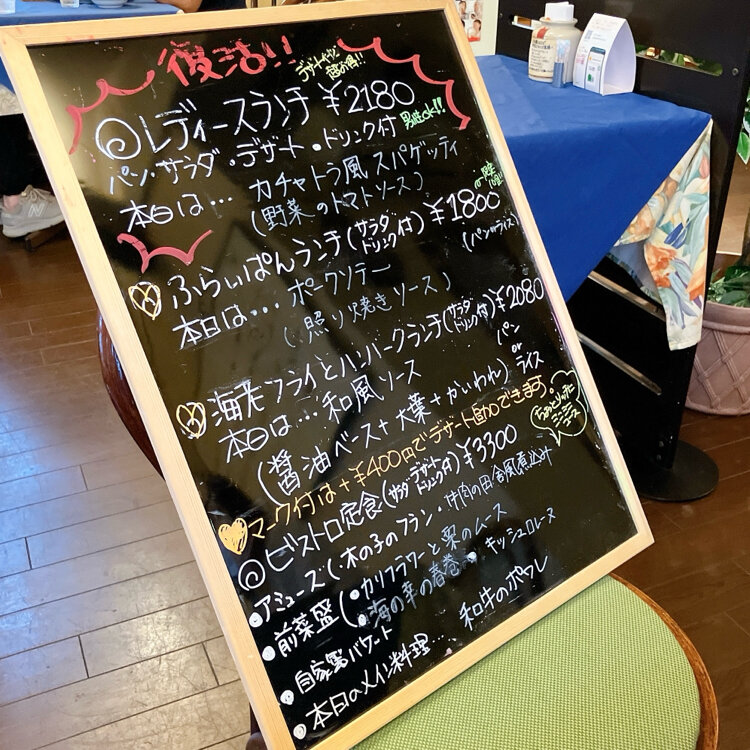 復活!!
デザートがついて
◎レディースランチ ¥2180
男性OK!!
パン・サラダ・デザート・ドリンク付
本日は… カチャトラ風 スパゲッティ
(野菜のトマトソース)
ふらいぱんランチ(サラダ ドリンク付) ¥1800
(パンorライス)
本日は… ポークソテー
(照り焼きソース)
海老フライとハンバーグランチ(サラダ ドリンク付) ¥2080
パン or ライス
本日は… 和風ソース
(醤油ベース+大葉+かいわれ)
マーク付は+¥400円でデザート追加できます。
ちょっとリッチに
◎ビストロ定食(サラダ デザート ドリンク付) ¥3300
・アミューズ(・木の子のフラン・牛肉の田舎風煮込み
・前菜盛(・カリフラワーと栗のムース
・海の幸の春巻・キッシュロレーヌ
・自家製バケット
・本日のメイン料理… 和牛のポワレ